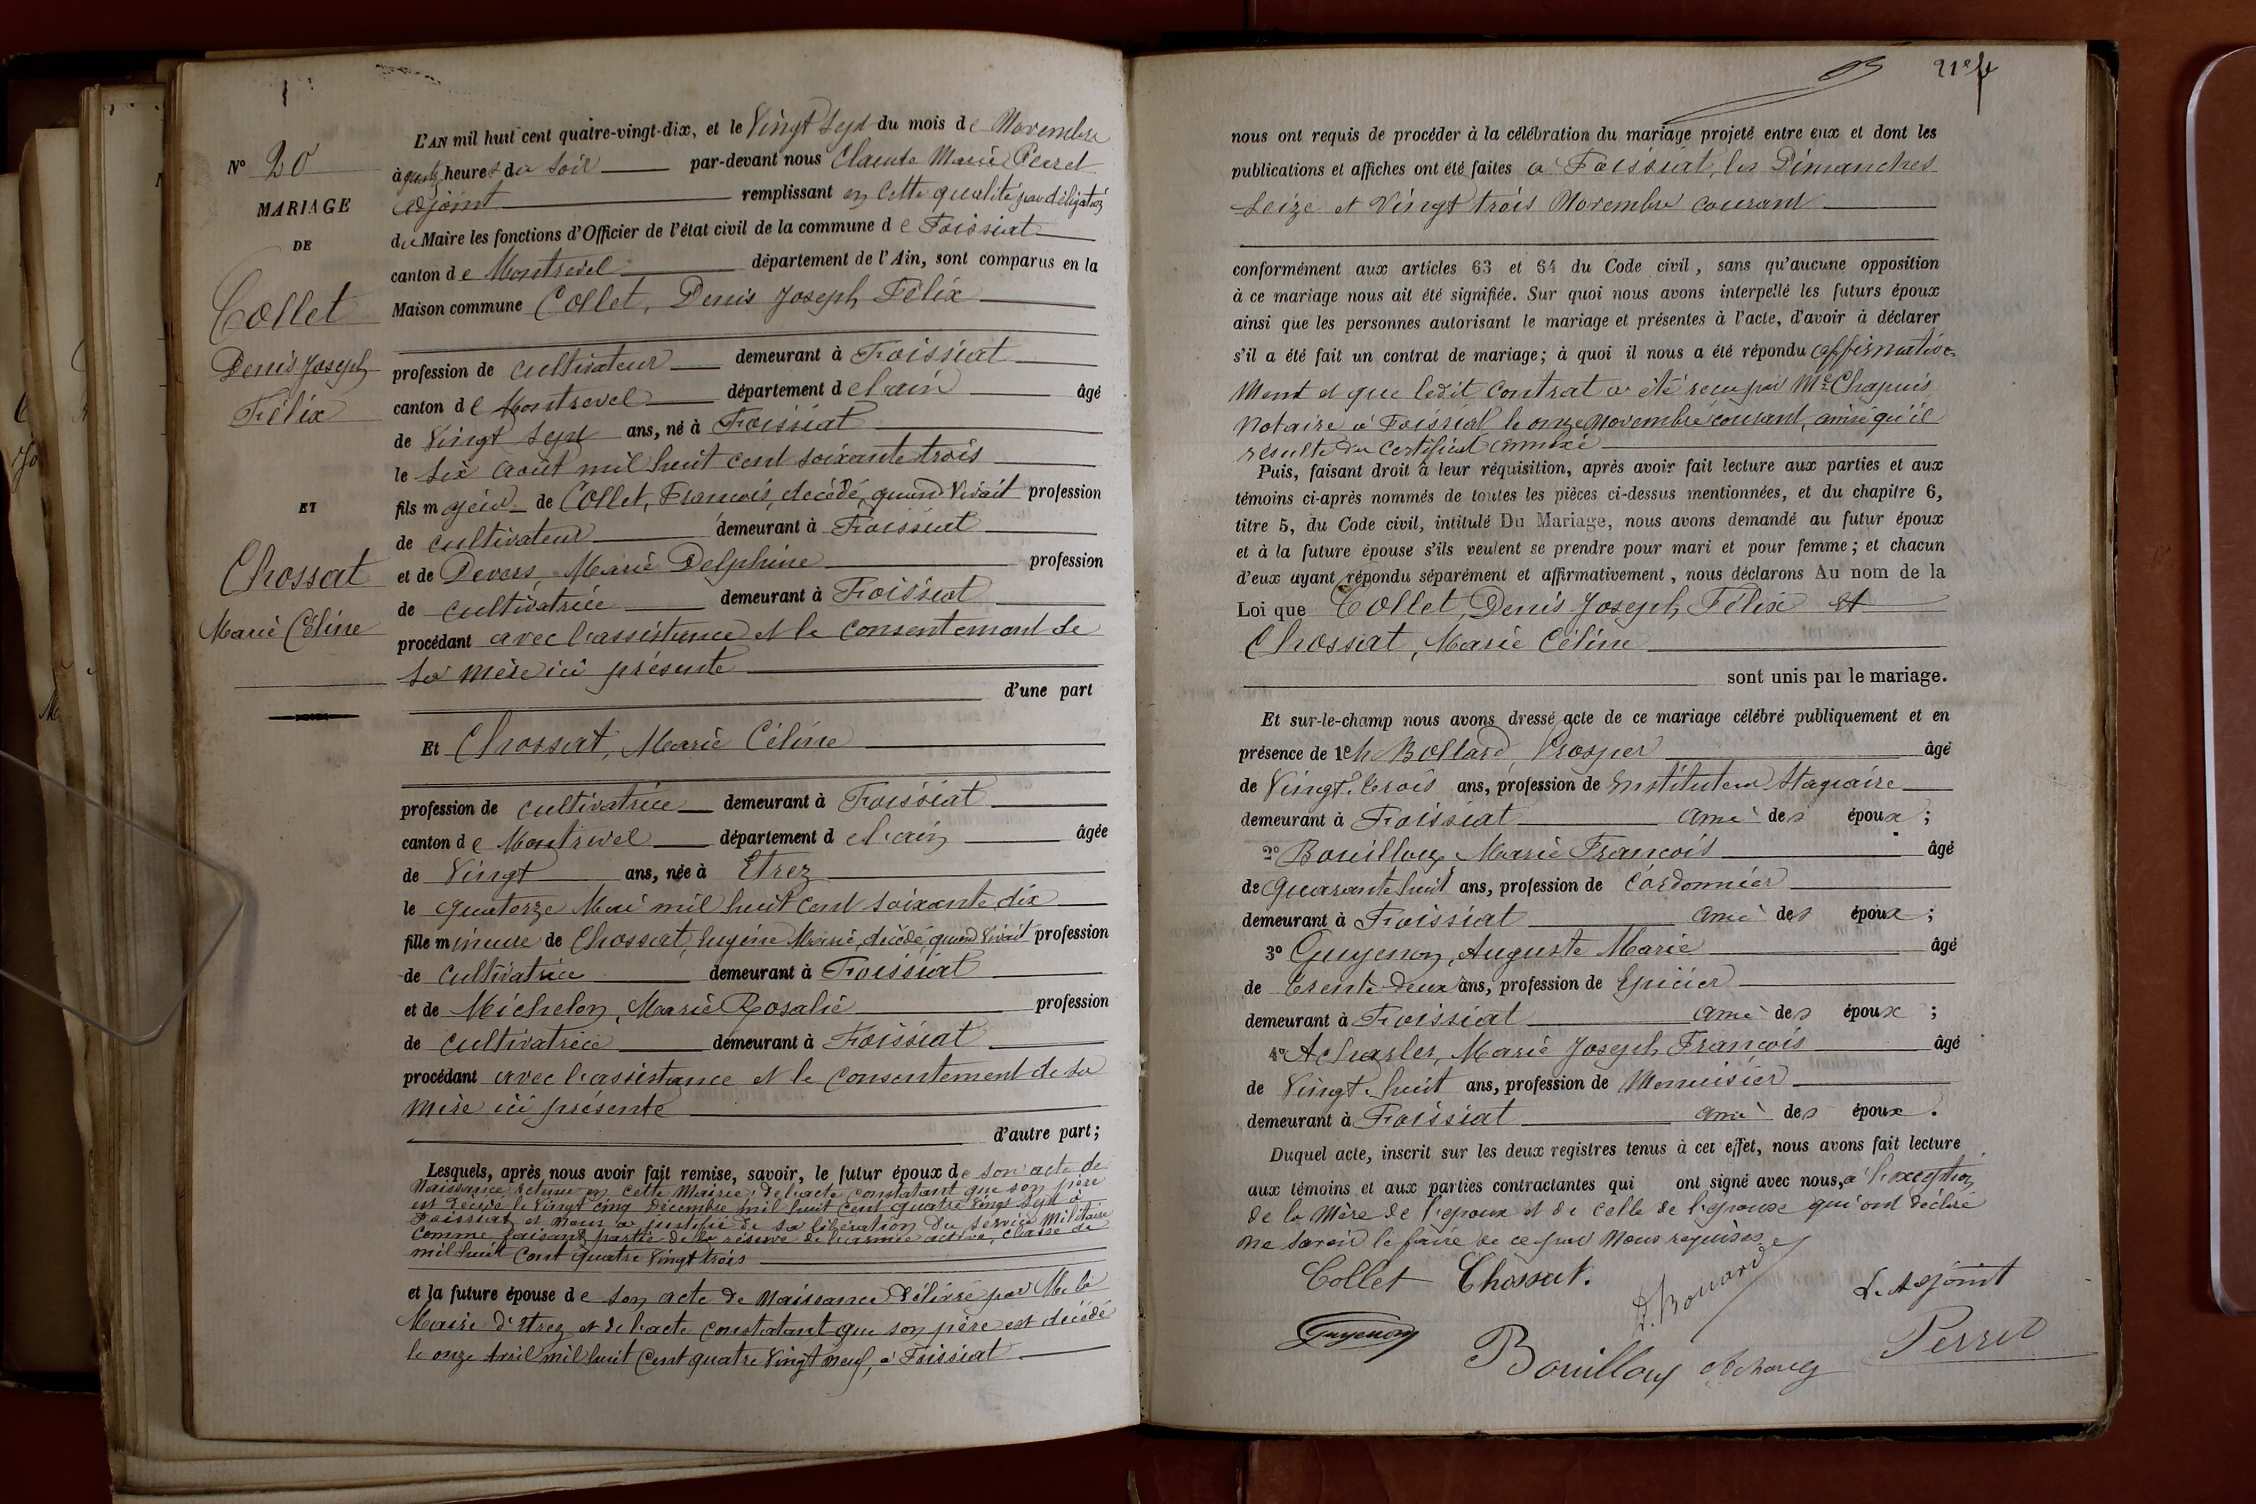 N° 20
MARIAGE
DE
Collet
Denis Joseph
Félix
ET
Chossat
Marie Céline
L'AN mil huit cent quatre-vingt-dix, et le Vingt Sept du mois de Novembre
à heures du soir par-devant nous Claude Marie Perret
adjoint remplissant en cette qualité par délégation
du Maire les fonctions d'Officier de l'état civil de la commune de Foissiat
canton de Montrevel département de l'Ain, sont comparus en la
Maison commune Collet, Denis Joseph Félix
profession de cultivateur demeurant à Foissiat
canton de Montrevel département de l'ain âgé
de Vingt Sept ans, né à Foissiat
le Six août mil huit cent soixante trois
fils majeur de Collet, François, décédé, quand Vivait profession
de cultivateur demeurant à Foissiat
et de Devers, Marie Delphine profession
de cultivatrice demeurant à Foissiat
procédant avec l'assistance et le consentement de
sa mère ici présente
d'une part
Et Chossat, Marie Céline
profession de cultivatrice demeurant à Foissiat
canton de Montrevel département de l'ain âgée
de Vingt ans, née à Etrez
le quatorze Mai mil huit cent soixante dix
fille mineure de Chossat, Eugène Marie, décédé, quand Vivait profession
de cultivatrice demeurant à Foissiat
et de Michelon, Marie Rosalie profession
de cultivatrice demeurant à Foissiat
procédant avec l'assistance et le consentement de sa
mère ici présente
d'autre part;
Lesquels, après nous avoir fait remise, savoir, le futur époux de son acte de
Naissance retenu en cette Mairie, de l'acte constatant que son père
est décédé le Vingt cinq Décembre mil huit cent quatre Vingt Sept à
Foissiat et nous a justifié de sa libération du service Militaire
comme faisant partie de la réserve de l'armée active, classe de
mil huit cent quatre Vingt trois
et la future épouse de son acte de Naissance délivré par Mr le
Maire d'Etrez et de l'acte constatant que son père est décédé
le onze Avril mil huit cent quatre Vingt neuf, à Foissiat
nous ont requis de procéder à la célébration du mariage projeté entre eux et dont les
publications et affiches ont été faites à Foissiat, les Dimanches
Seize et Vingt trois Novembre courant
conformément aux articles 63 et 64 du Code civil, sans qu'aucune opposition
à ce mariage nous ait été signifiée. Sur quoi nous avons interpellé les futurs époux
ainsi que les personnes autorisant le mariage et présentes à l'acte, d'avoir à déclarer
s'il a été fait un contrat de mariage; à quoi il nous a été répondu affirmative-
ment et que ledit contrat a été reçu par Me Chapuis
Notaire à Foissiat le onze Novembre courant, ainsi qu'il
résulte du certificat annexé
Puis, faisant droit à leur réquisition, après avoir fait lecture aux parties et aux
témoins ci-après nommés de toutes les pièces ci-dessus mentionnées, et du chapitre 6,
titre 5, du Code civil, intitulé Du Mariage, nous avons demandé au futur époux
et à la future épouse s'ils veulent se prendre pour mari et pour femme; et chacun
d'eux ayant répondu séparément et affirmativement, nous déclarons Au nom de la
Loi que Collet, Denis Joseph, Félix et
Chossat, Marie Céline
sont unis par le mariage.
Et sur-le-champ nous avons dressé acte de ce mariage célébré publiquement et en
présence de Prosper âgé
de Vingt trois ans, profession de Instituteur Stagiaire
demeurant à Foissiat ami des époux;
2° Bouilloux, Marie François âgé
de quarante huit ans, profession de Cordonnier
demeurant à Foissiat ami des époux;
3° Guyenon, Auguste Marie âgé
de trente deux ans, profession de Epicier
demeurant à Foissiat ami des époux;
4° Acharles, Marie Joseph François âgé
de Vingt huit ans, profession de Menuisier
demeurant à Foissiat ami des époux.
Duquel acte, inscrit sur les deux registres tenus à cet effet, nous avons fait lecture
aux témoins et aux parties contractantes qui ont signé avec nous, à l'exception
de la Mère de l'époux et de celle de l'épouse qui ont déclaré
ne savoir le faire de ce par Nous requises
Collet Chossat.
L'Adjoint
Guyenon
Bouilloux
Perret